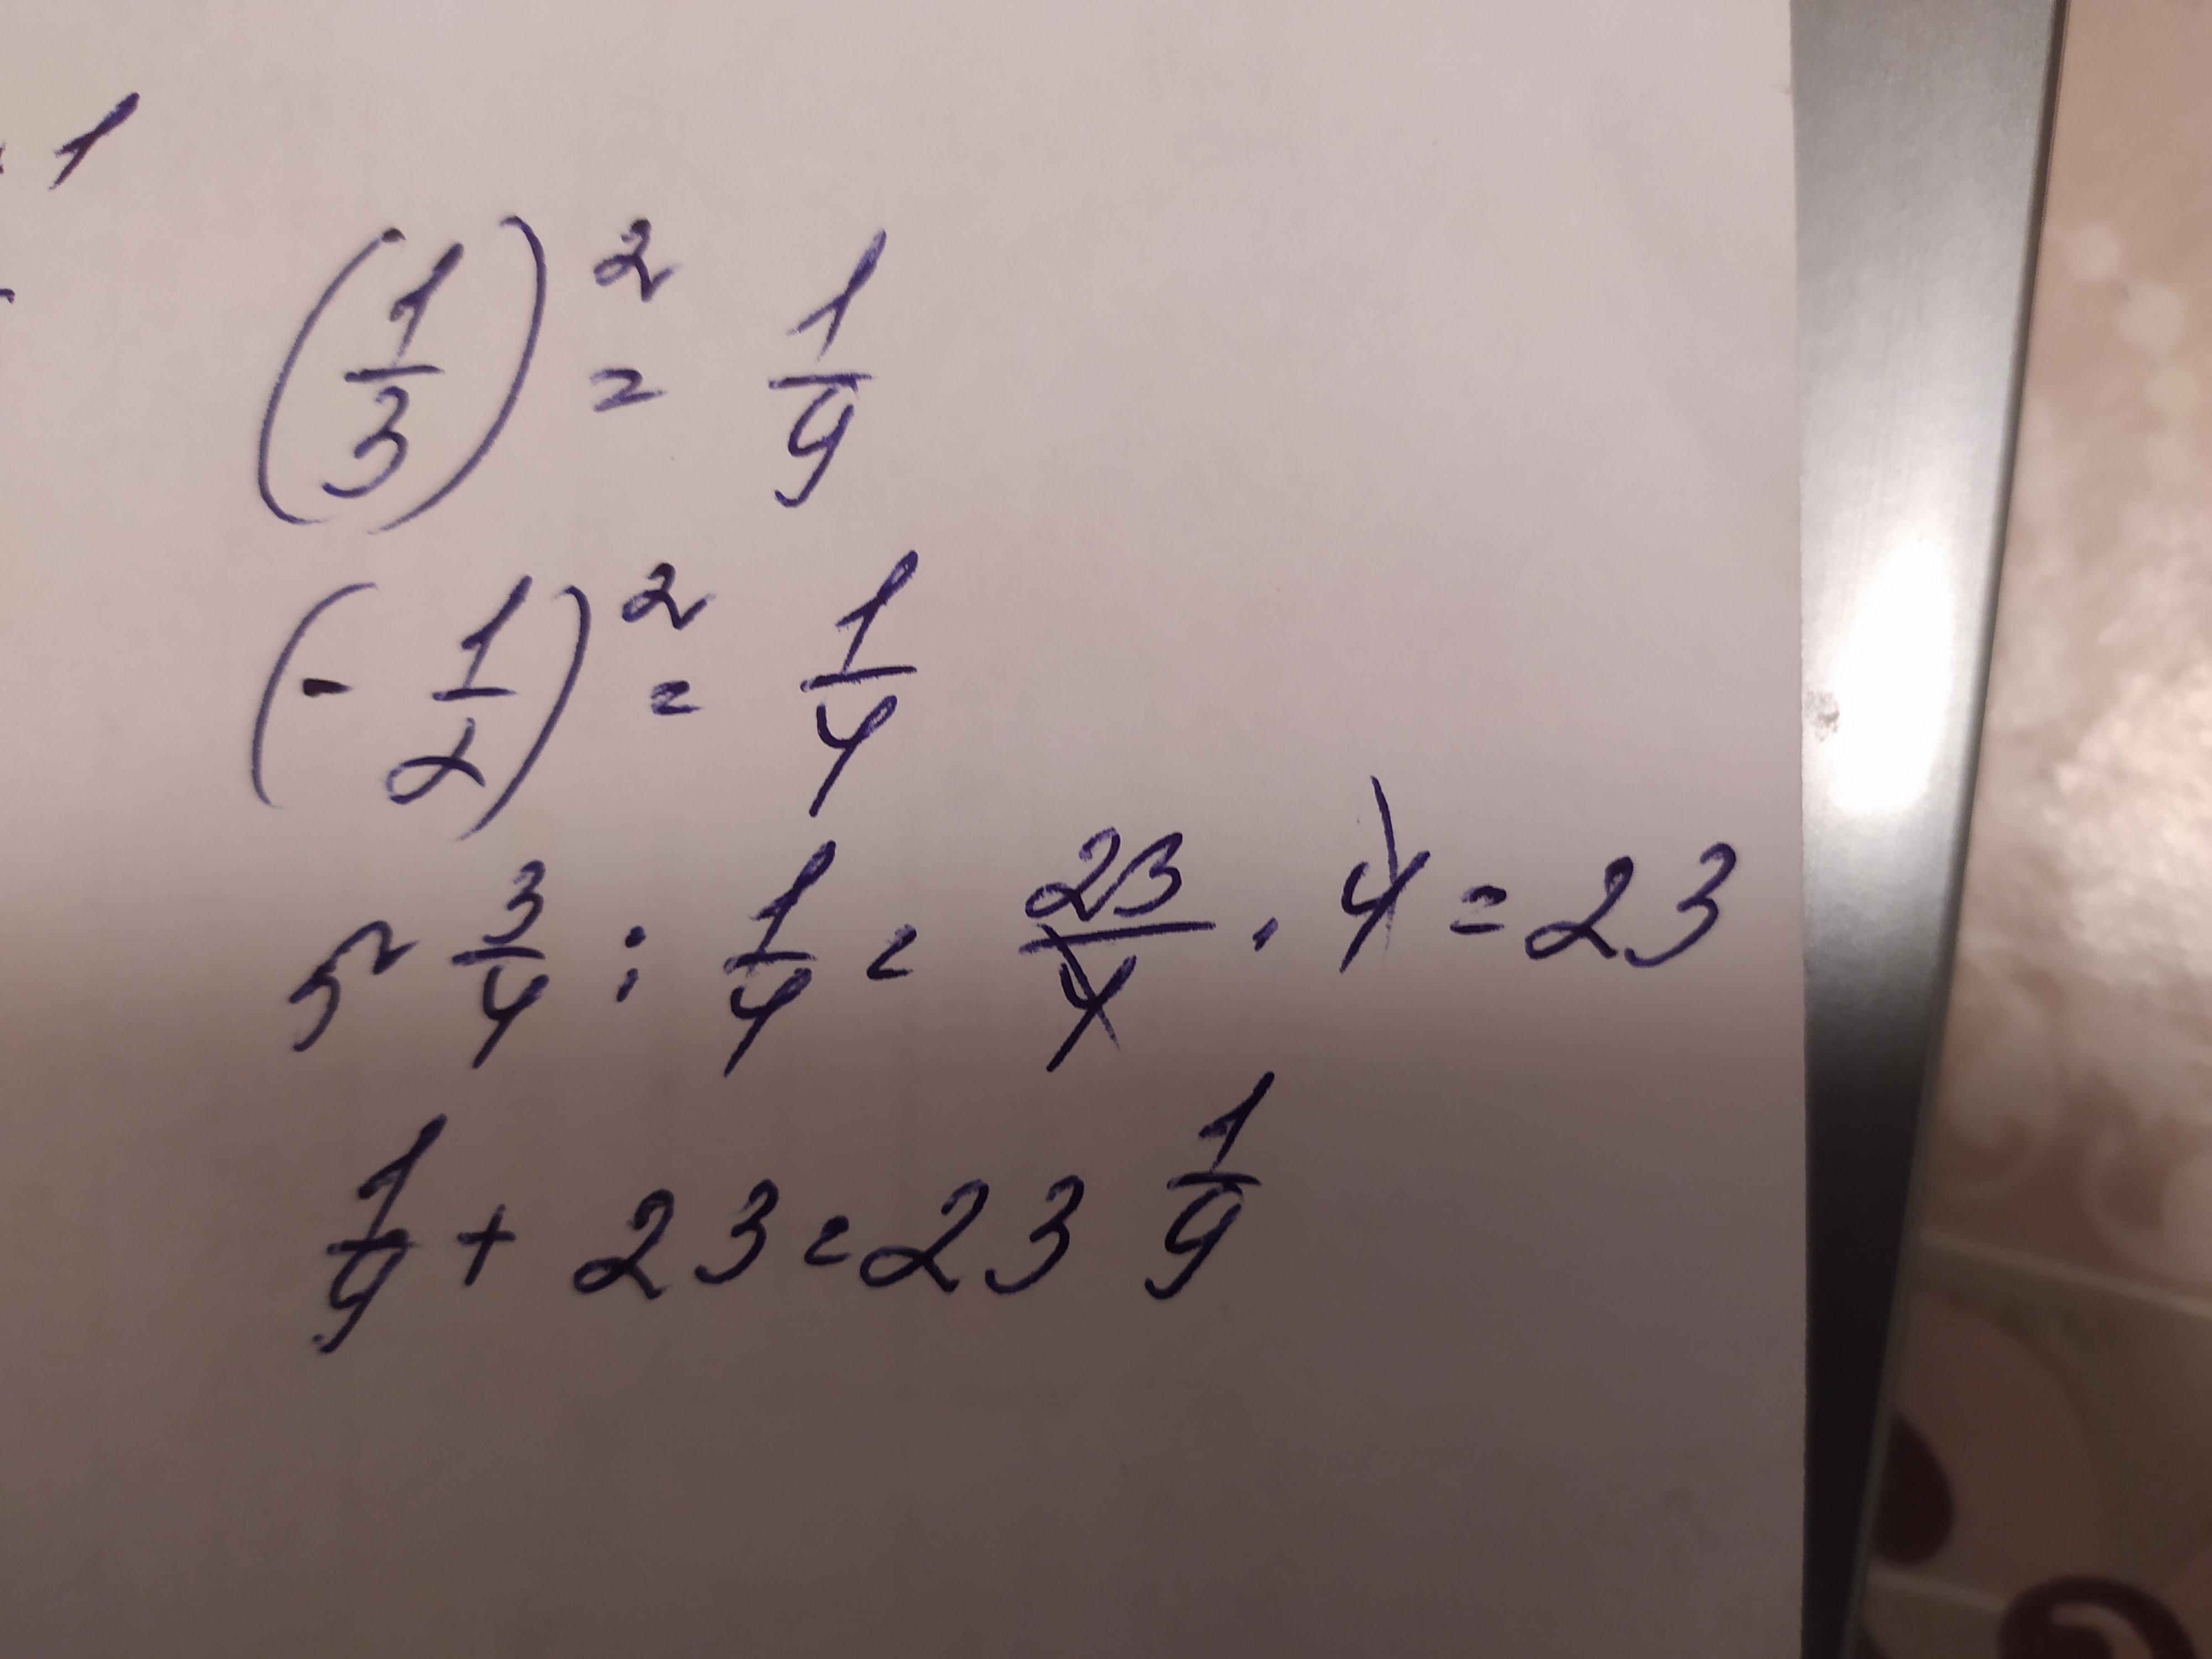 1
(1/3)² = 1/9
(- 1/2)² = 1/4
5 3/4 : 1/4 = 23/4 · 4 = 23
1/9 + 23 = 23 1/9